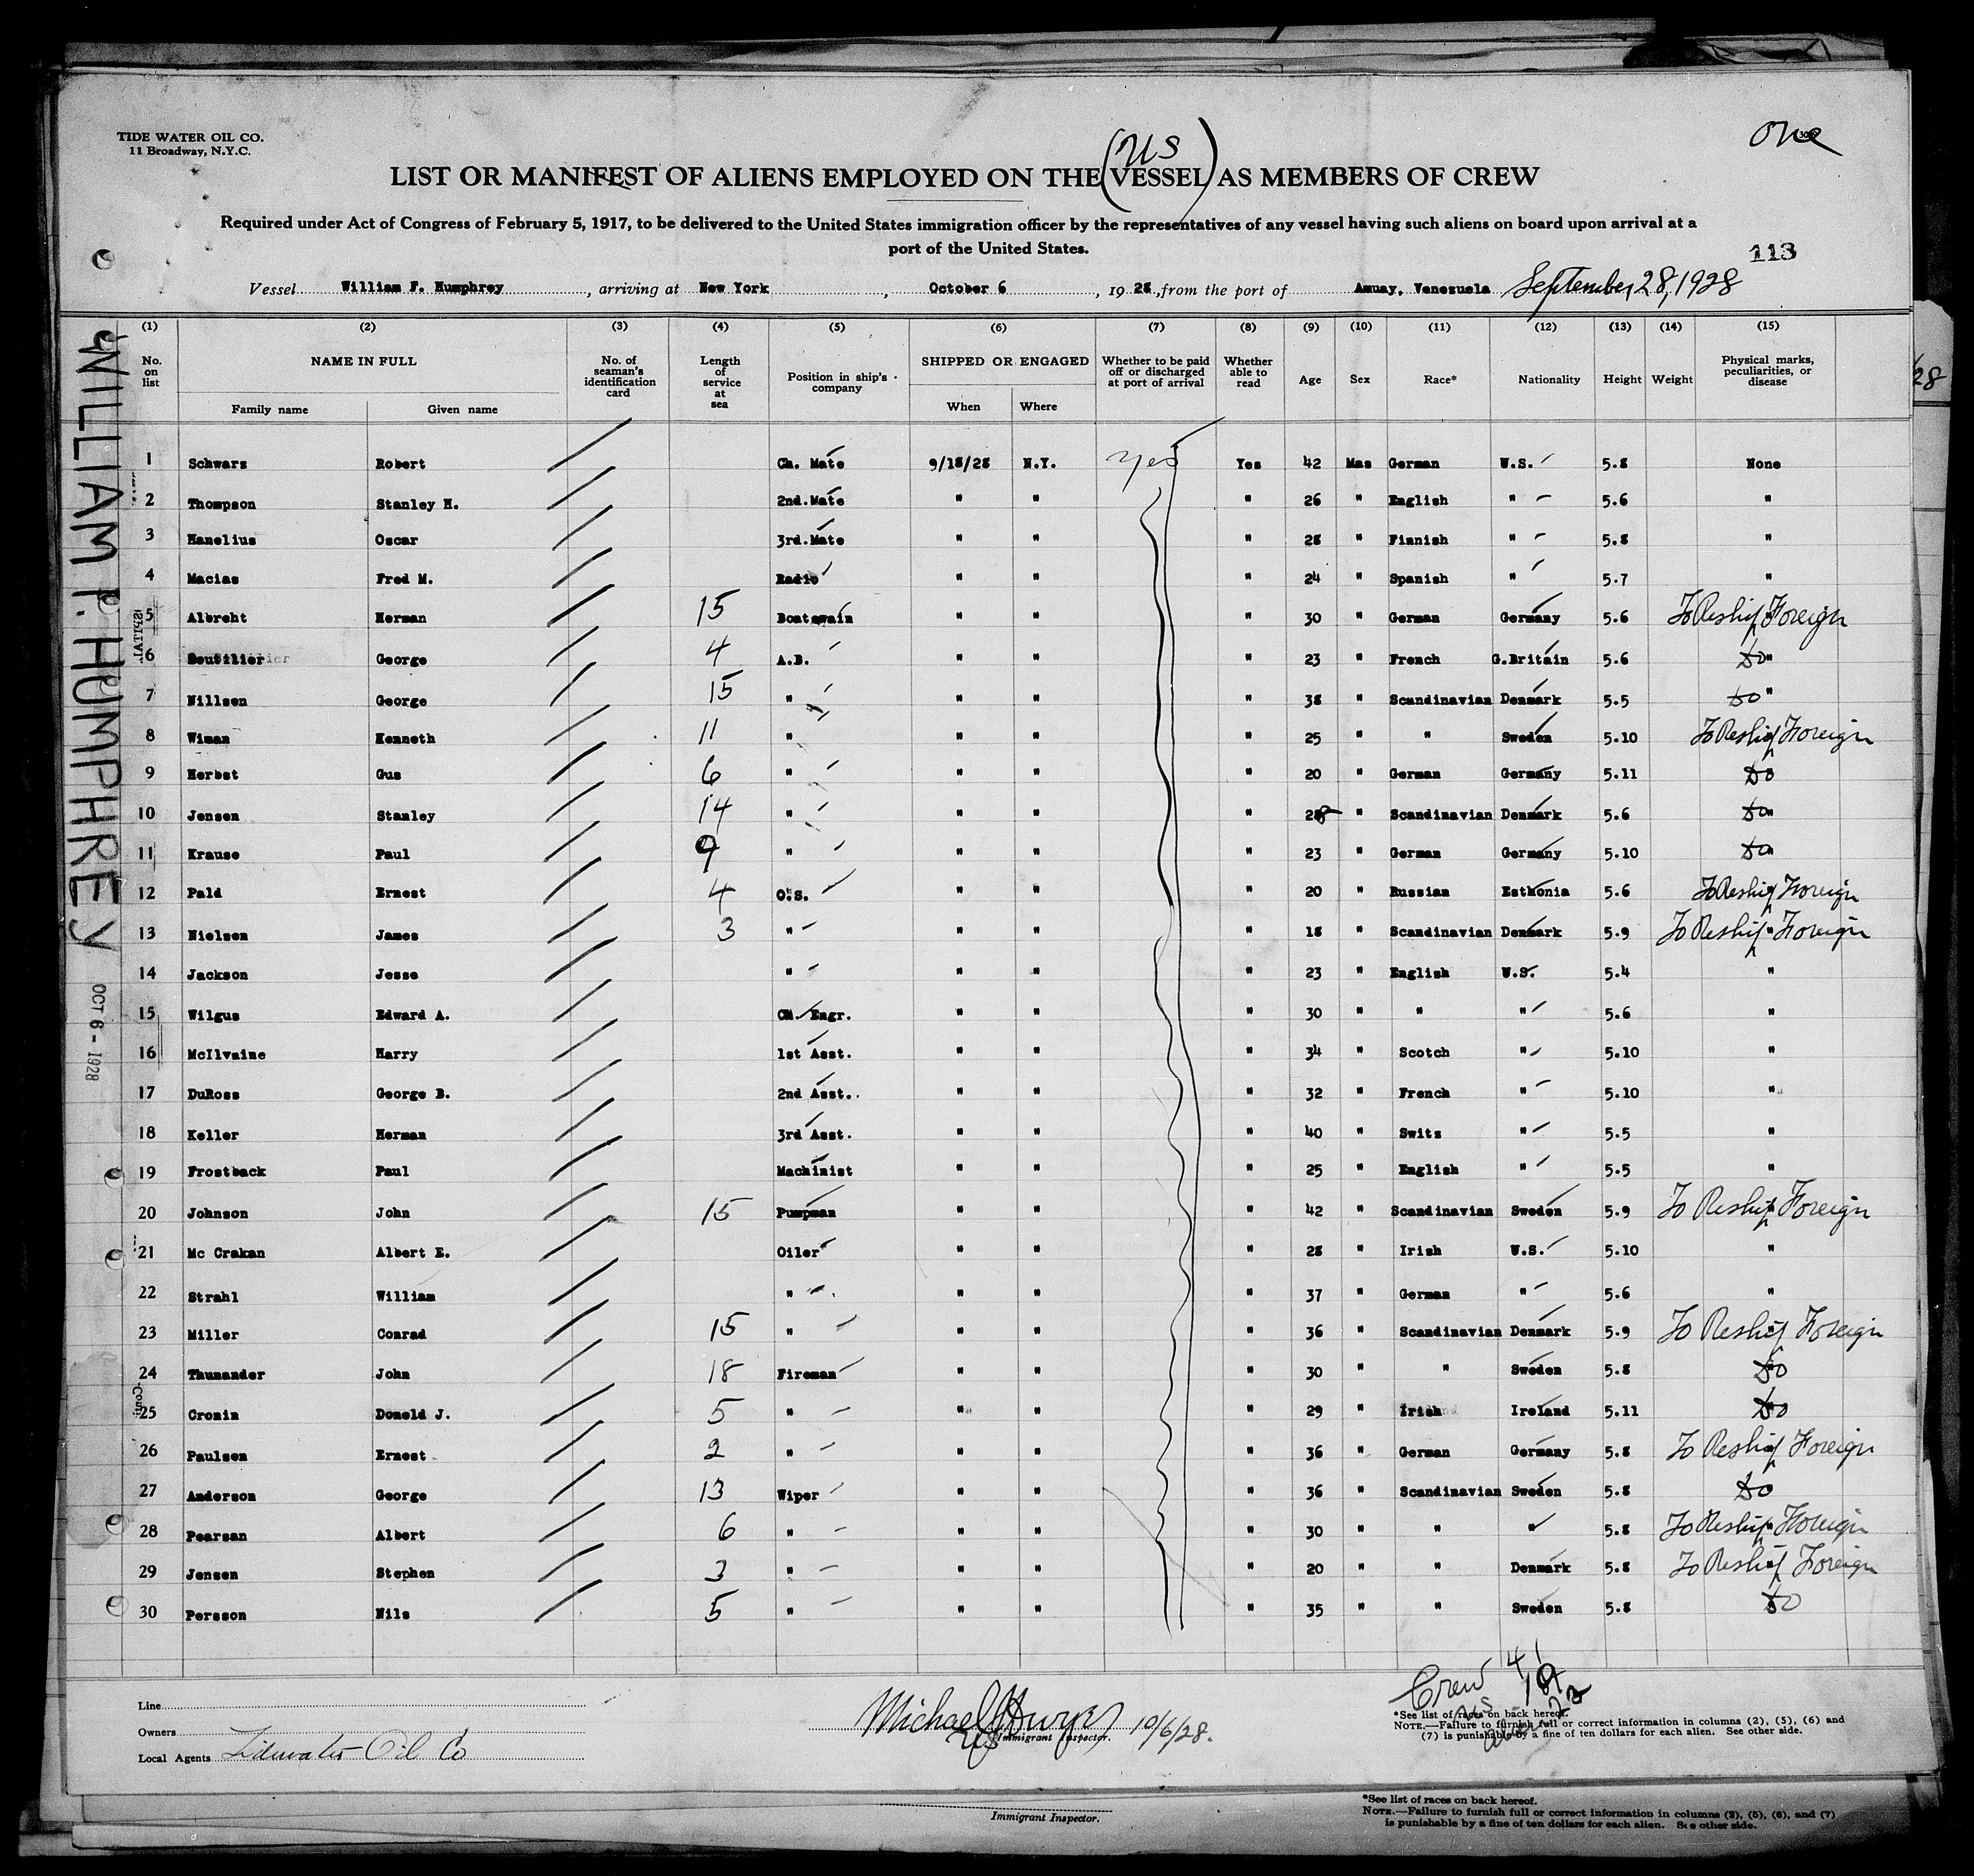 TIDE WATER OIL CO.
11 Broadway, N.Y.C.
One
(US)
LIST OR MANIFEST OF ALIENS EMPLOYED ON THE VESSEL AS MEMBERS OF CREW
Required under Act of Congress of February 5, 1917, to be delivered to the United States immigration officer by the representatives of any vessel having such aliens on board upon arrival at a
port of the United States.
113
Vessel William F. Humphrey, arriving at New York, October 6, 1928, from the port of Amuay, Venezuela September 28, 1928
(1) (2) (3) (4) (5) (6) (7) (8) (9) (10) (11) (12) (13) (14) (15)
No. on list NAME IN FULL Family name Given name No. of seaman's identification card Length of service at sea Position in ship's company SHIPPED OR ENGAGED When Where Whether to be paid off or discharged at port of arrival Whether able to read Age Sex Race* Nationality Height Weight Physical marks, peculiarities, or disease
1 Schwarz Robert Ch. Mate 9/18/28 N.Y. Yes Yes 42 Mas German U.S. 5.8 None
2 Thompson Stanley H. 2nd.Mate " " " 26 " English " 5.6 "
3 Hanelius Oscar 3rd.Mate " " " 28 " Finnish " 5.8 "
4 Macias Fred M. Radio " " " 24 " Spanish " 5.7 "
5 Albreht Herman 15 Boatswain " " " 30 " German Germany 5.6 " To Reship Foreign
6 Boutilier George 4 A.B. " " " 23 " French G.Britain 5.6 do "
7 Nillsen George 15 " " " " 38 " Scandinavian Denmark 5.5 do "
8 Wiman Kenneth 11 " " " " 25 " " Sweden 5.10 To Reship Foreign
9 Herbst Gus 6 " " " " 20 " German Germany 5.11 do
10 Jensen Stanley 14 " " " " 28 " Scandinavian Denmark 5.6 do "
11 Krause Paul 9 " " " " 23 " German Germany 5.10 do "
12 Pald Ernest 4 O.S. " " " 20 " Russian Esthonia 5.6 To Reship Foreign
13 Nielsen James 3 " " " " 18 " Scandinavian Denmark 5.9 To Reship " Foreign
14 Jackson Jesse " " " " 23 " English U.S. 5.4 "
15 Wilgus Edward A. Ch. Engr. " " " 30 " " " 5.6 "
16 McIlvaine Harry 1st Asst. " " " 34 " Scotch " 5.10 "
17 DuRoss George B. 2nd Asst. " " " 32 " French " 5.10 "
18 Keller Herman 3rd Asst. " " " 40 " Switz " 5.5 "
19 Frostback Paul Machinist " " " 25 " English " 5.5 "
20 Johnson John 15 Pumpman " " " 42 " Scandinavian Sweden 5.9 To Reship Foreign
21 Mc Crakan Albert E. Oiler " " " 28 " Irish U.S. 5.10 "
22 Strahl William " " " " 37 " German " 5.6 "
23 Miller Conrad 15 " " " " 36 " Scandinavian Denmark 5.9 To Reship Foreign
24 Thunander John 18 Fireman " " " 30 " " Sweden 5.8 do
25 Cronin Donald J. 5 " " " " 29 " Irish Ireland 5.11 do
26 Paulsen Ernest 2 " " " " 36 " German Germany 5.8 To Reship Foreign
27 Anderson George 13 Wiper " " " 36 " Scandinavian Sweden 5.8 do
28 Pearsan Albert 6 " " " " 30 " " " 5.8 To Reship Foreign
29 Jensen Stephen 3 " " " " 20 " " Denmark 5.8 To Reship Foreign
30 Persson Nils 5 " " " " 35 " " Sweden 5.8 do
WILLIAM F. HUMPHREY
OCT 6 - 1928
28
Crew 41
Line
Owners
Local Agents Tidewater Oil Co
Michael J Dwyer 10/6/28.
Immigrant Inspector.
*See list of races on back hereof.
NOTE.—Failure to furnish full or correct information in columns (2), (5), (6) and
(7) is punishable by a fine of ten dollars for each alien. See other side.
Immigrant Inspector.
*See list of races on back hereof.
NOTE.—Failure to furnish full or correct information in columns (2), (5), (6), and (7)
is punishable by a fine of ten dollars for each alien. See other side.